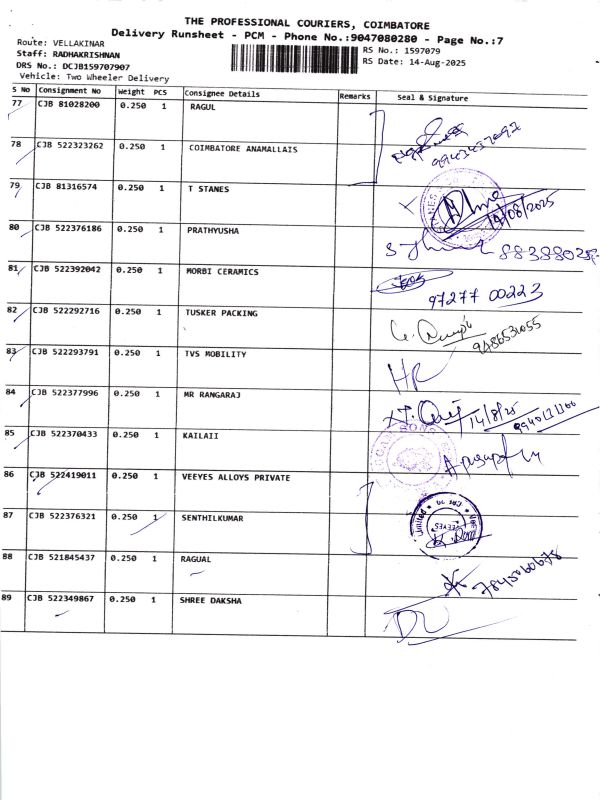 THE PROFESSIONAL COURIERS, COIMBATORE
Delivery Runsheet - PCM - Phone No.:9047080280 - Page No.:7
Route: VELLAKINAR
Staff: RADHAKRISHNAN
DRS No.: DCJB159707907
Vehicle: Two Wheeler Delivery
RS No.: 1597079
RS Date: 14-Aug-2025
S No Consignment No Weight PCS Consignee Details Remarks Seal & Signature
77 CJB 81028200 0.250 1 RAGUL
78 CJB 522323262 0.250 1 COIMBATORE ANAMALLAIS
79 CJB 81316574 0.250 1 T STANES 14/08/2025
80 CJB 522376186 0.250 1 PRATHYUSHA
81 CJB 522392042 0.250 1 MORBI CERAMICS 97277 00223
82 CJB 522292716 0.250 1 TUSKER PACKING
83 CJB 522293791 0.250 1 TVS MOBILITY
84 CJB 522377996 0.250 1 MR RANGARAJ 14/8/25
85 CJB 522370433 0.250 1 KAILAII
86 CJB 522419011 0.250 1 VEEYES ALLOYS PRIVATE
87 CJB 522376321 0.250 1 SENTHILKUMAR
88 CJB 521845437 0.250 1 RAGUAL
89 CJB 522349867 0.250 1 SHREE DAKSHA